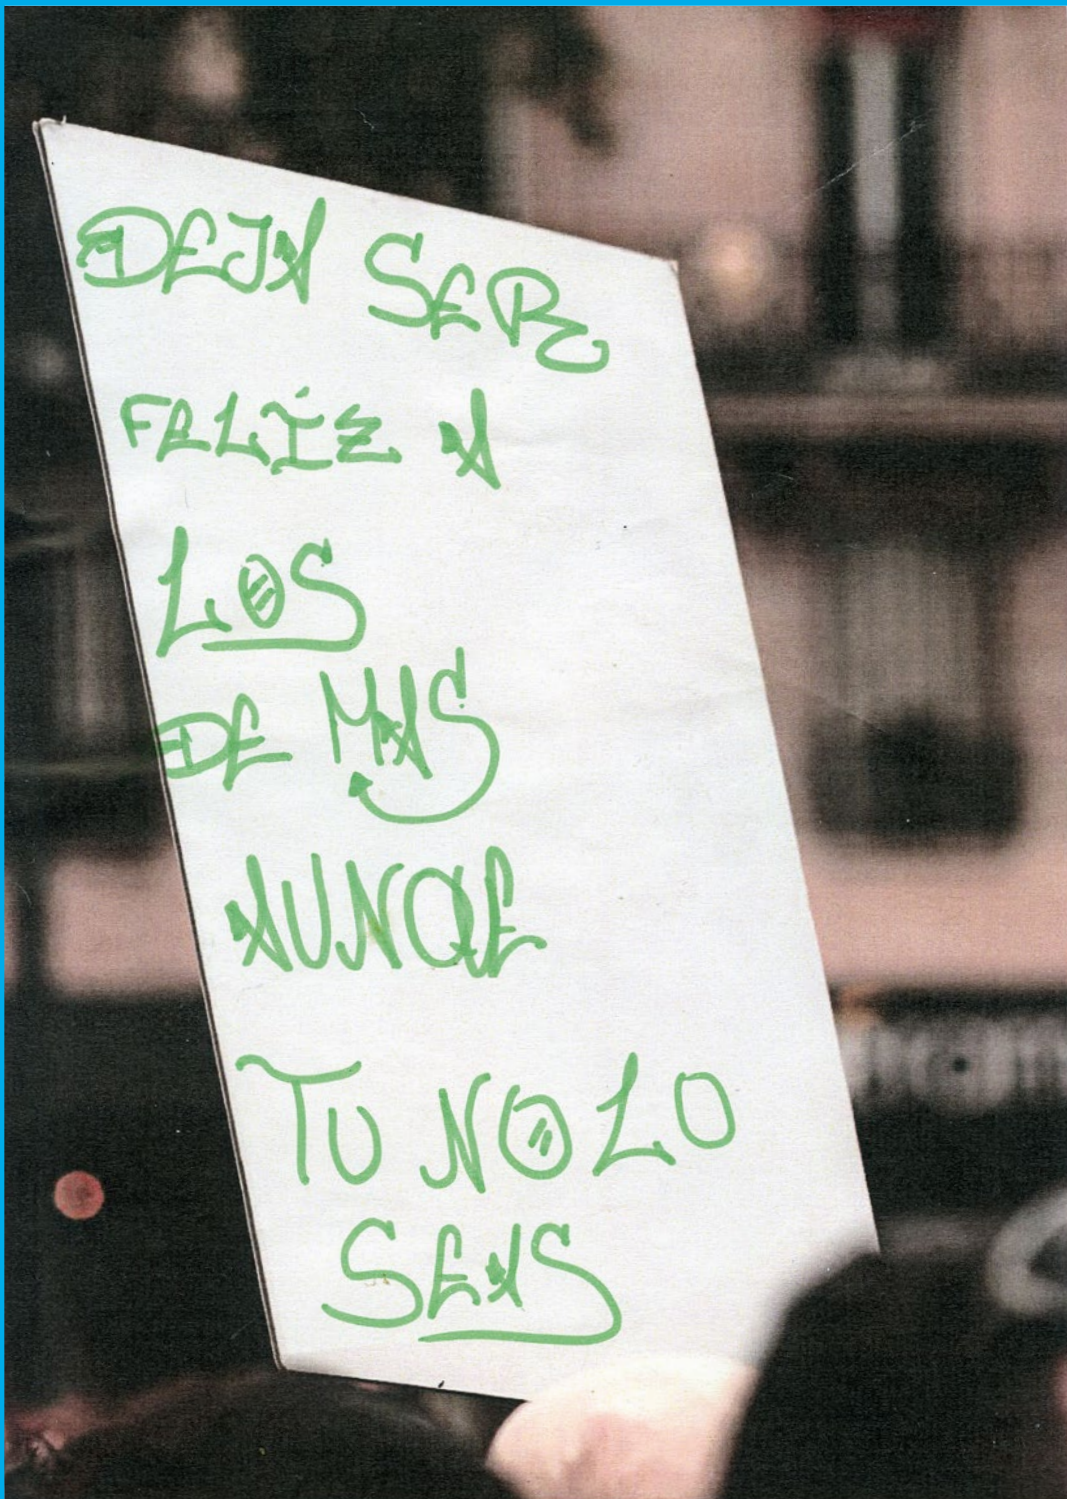 DEJA SER
FELIZ A
LOS
DE MAS
AUNQE
TU NO LO
SEAS